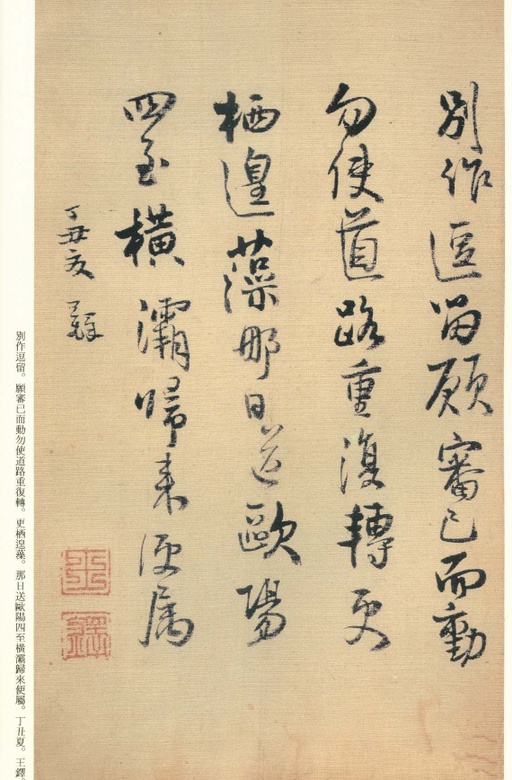 別作逗留願審己而動
勿使道路重復轉更
栖遑藻那日送歐陽
四至橫灞歸来便属
丁丑夏 王鐸
王鐸
別作逗留。願審已而動勿使道路重復轉。更栖遑藻。那日送歐陽四至橫灞歸來便屬。丁丑夏。王鐸。